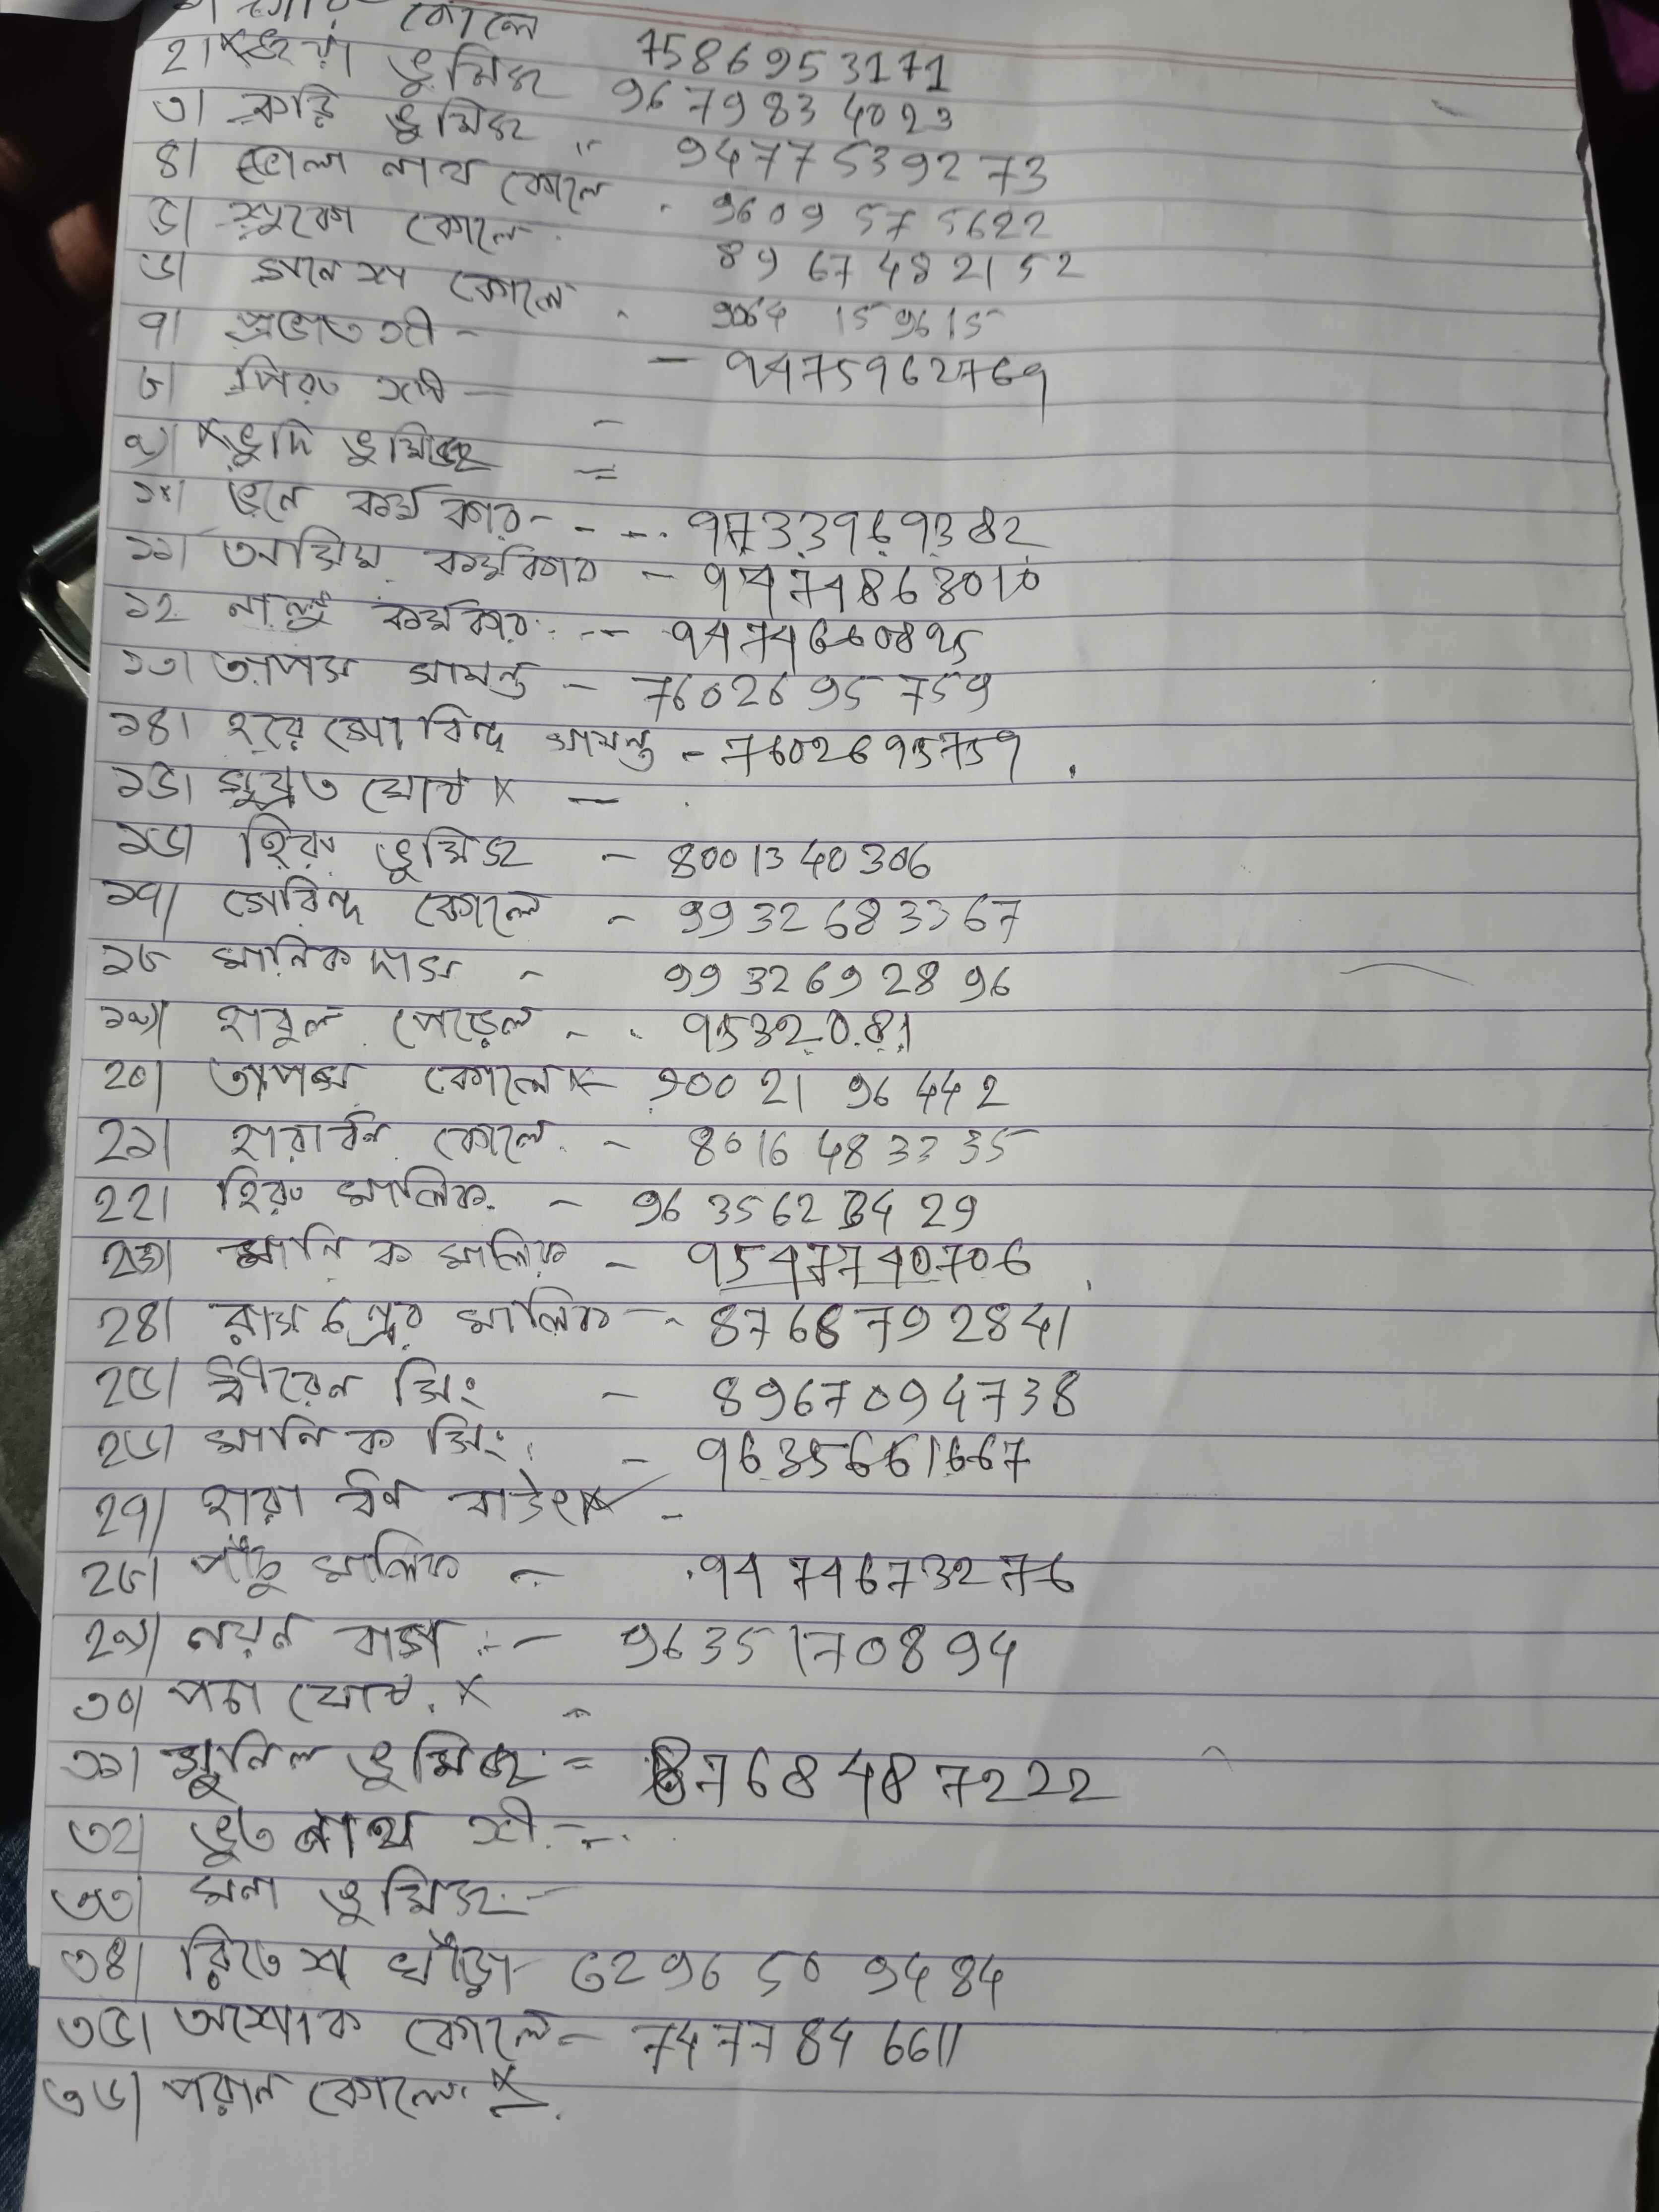 ১। গৌর কোলে 7586953171
২। × ভূমিজ 9679834023
৩। ভূমিজ " 9477539273
৪। ভোলা নাথ কোলে . 9609575622
৫। সুবোগ কোলে . 8967482152
৬। গনেশ কোলে . 9064159615
৭। প্রভাত শী - - 9475962769
৮। পিরু শী - -
৯) × ভুদি ভুমিজ =
১০। ভূনে কর্মকার - - - . 9733969382
১১। অসিম কর্মকার - 9474863010
১২ লাল্টু কর্মকার . - - 9474660895
১৩। তাপস সামন্ত - 7602695759
১৪। হরে গোবিন্দ সামন্ত - 7602695759 .
১৫। সুব্রত ঘোষ × - .
১৬। হিরু ভুমিজ - 8001340306
১৭। গোবিন্দ কোলে - 9932683367
১৮ মানিক দাস - 9932692896
১৯) হাবুল পোড়েল - . 9532081
২০। তাপস কোলে × - 9002196442
২১। হারাধন কোলে . - 8016483335
২২। হিরু মালিক . - 9635623429
২৩। মানিক মালিক - 9547740706
২৪। রাম মালিক - - 8768792841
২৫। ধীরেন সিং - 8967094738
২৬। মানিক সিং . - 9635661667
২৭) হারা ধন বাউং × -
২৮। পাঁচু মালিক - . 9474673276
২৯) নয়ন বাগ : - 9635170894
৩০। পচা ঘোষ . × -
৩১। সুনিল ভুমিজ = 8768487222
৩২। ভুত নাথ শী . - - .
৩৩। মনা ভুমিজ . -
৩৪। রিতেশ খাঁড়া - 6296509484
৩৫। অশোক কোলে - 7477846611
৩৬। পরান কোলে . ×